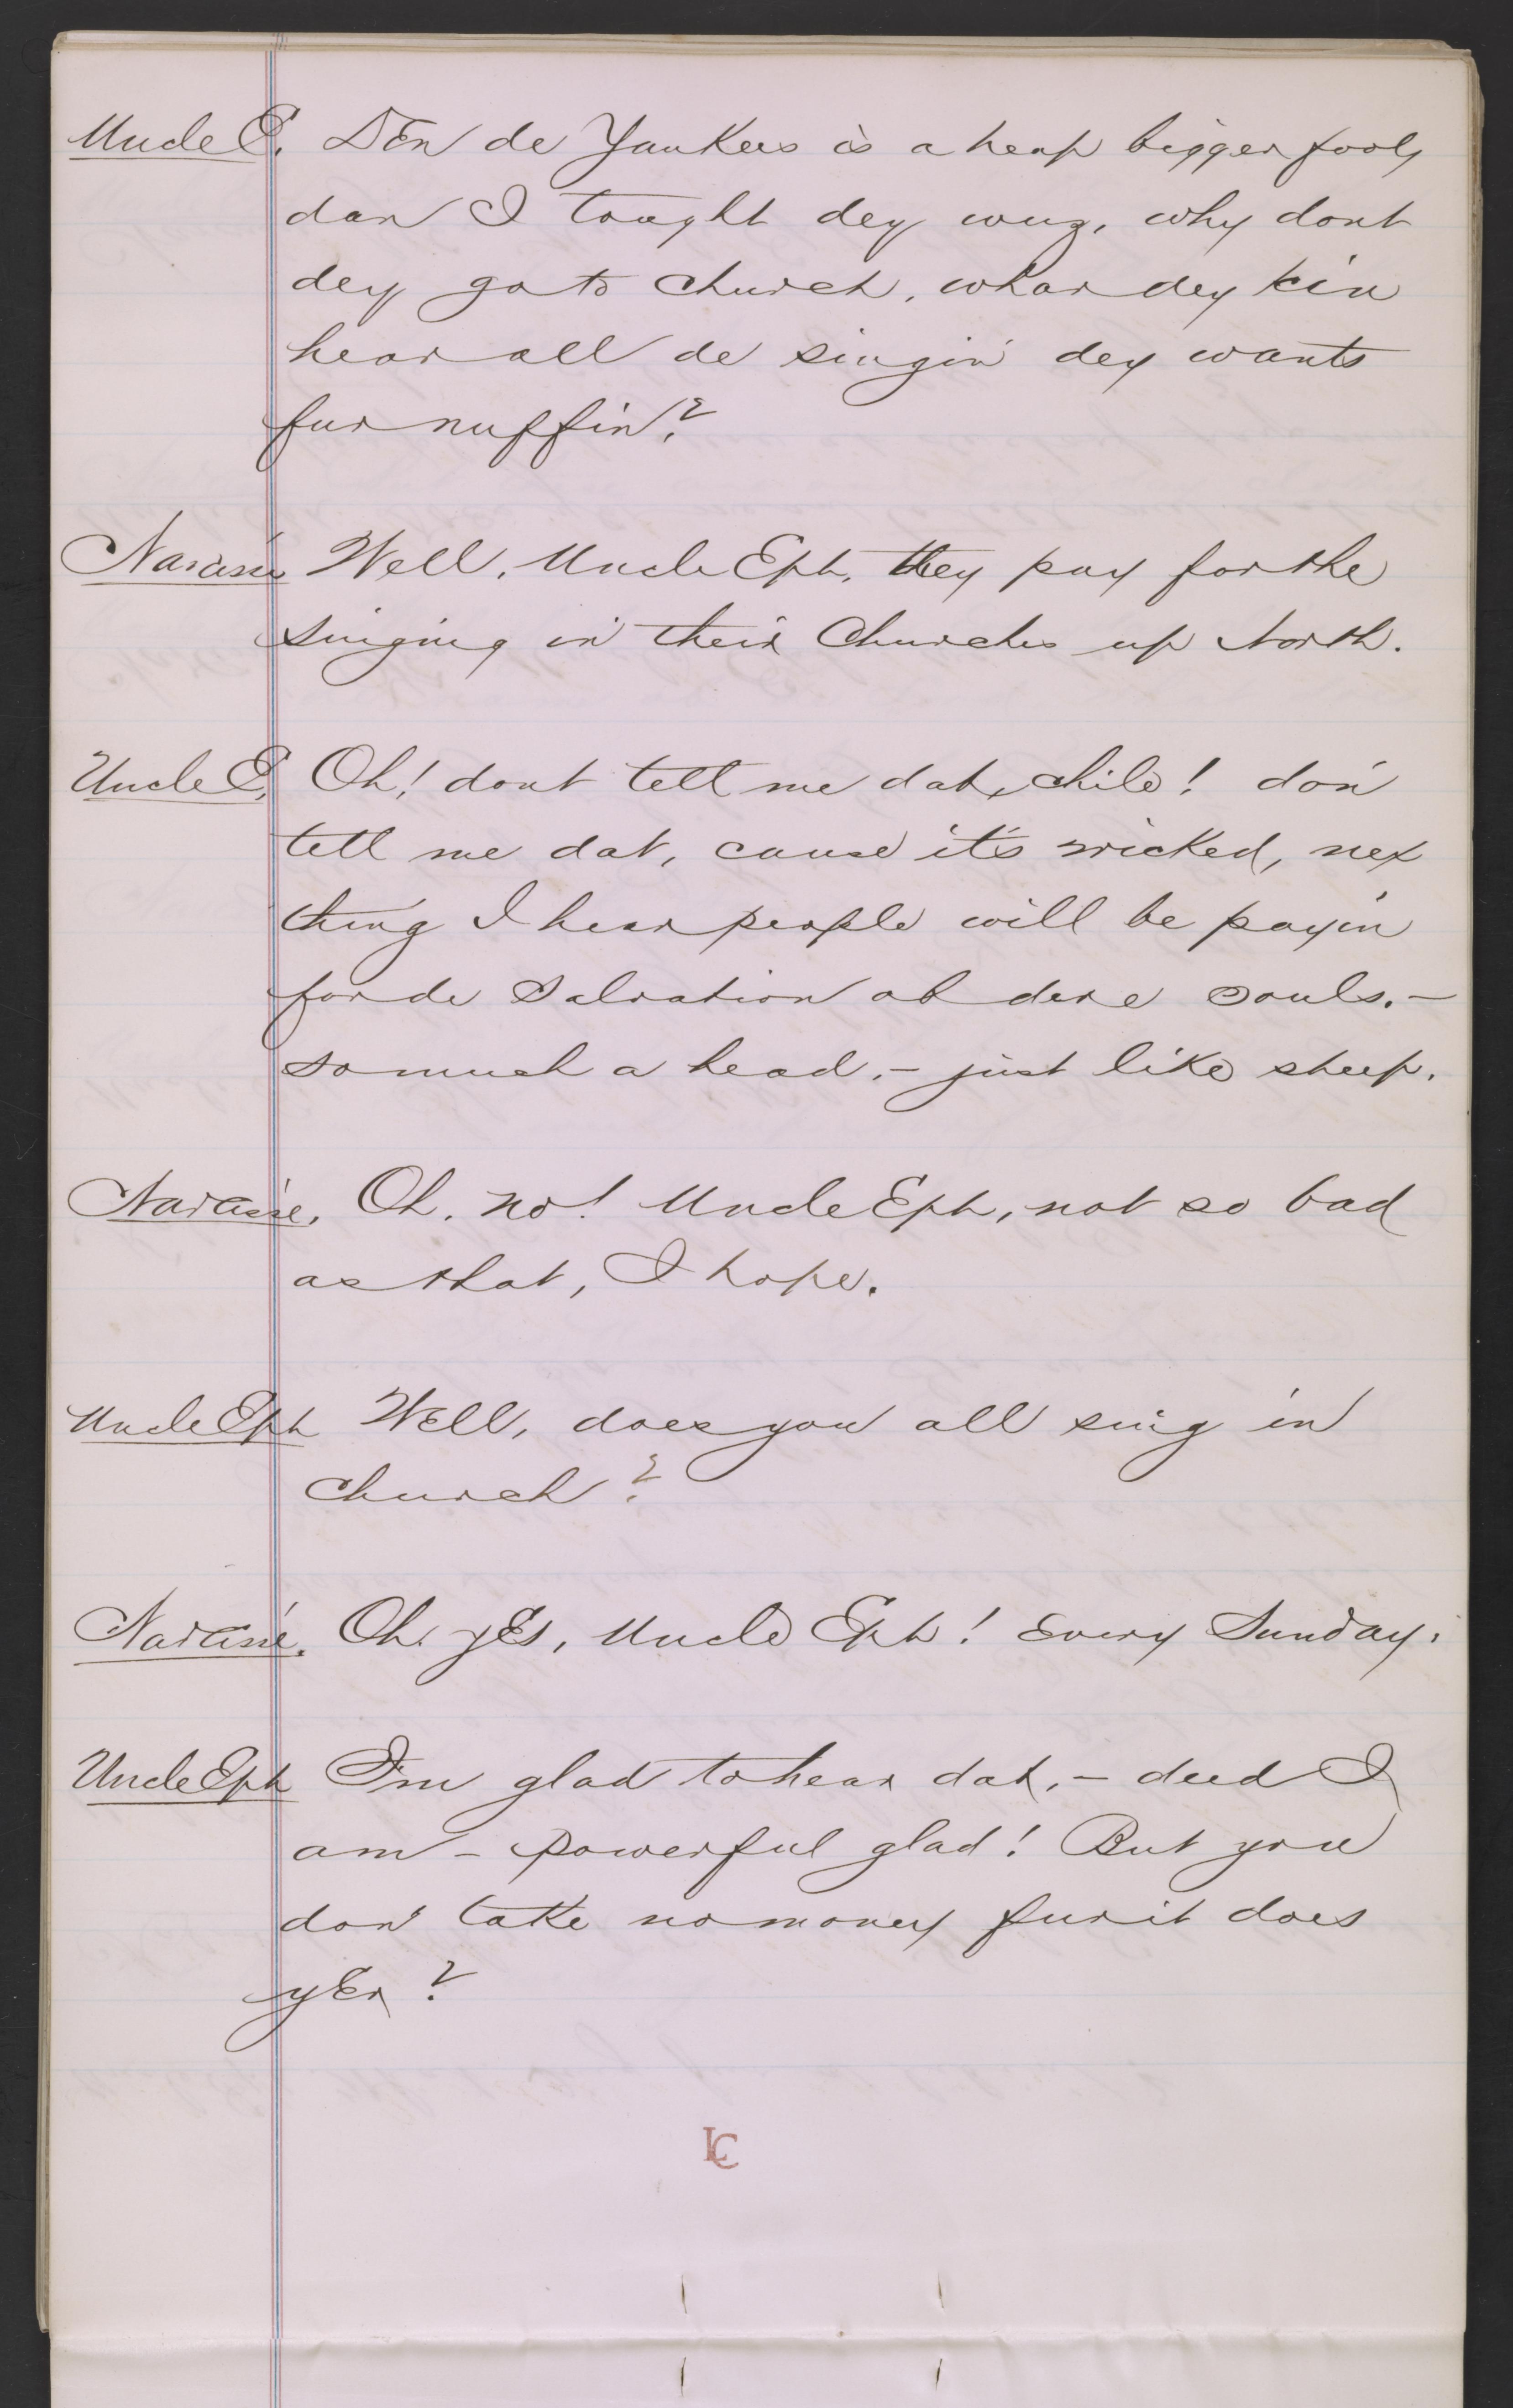 Uncle E. Den de Yankees is a heap bigger fools
dan I tought dey wuz, why dont
dey go to church, whar dey kin
hear all de singin' dey wants
fur nuffin?
Narcisse Well, Uncle Eph, they pay for the
singing in their Churches up North.
Uncle E. Oh! dont tell me dat, chile! don'
tell me dat, cause it's wicked, nex
thing I hear people will be payin'
for de Salvation ob dere souls. –
so much a head, – just like sheep.
Narcisse. Oh, no! Uncle Eph, not so bad
as that, I hope.
Uncle Eph Well, does you all sing in
church?
Narcisse. Oh, yes, Uncle Eph! Every Sunday.
Uncle Eph I'm glad to hear dat, – deed I
am – powerful glad! But you
don' take no money fur it does
yer?
LC